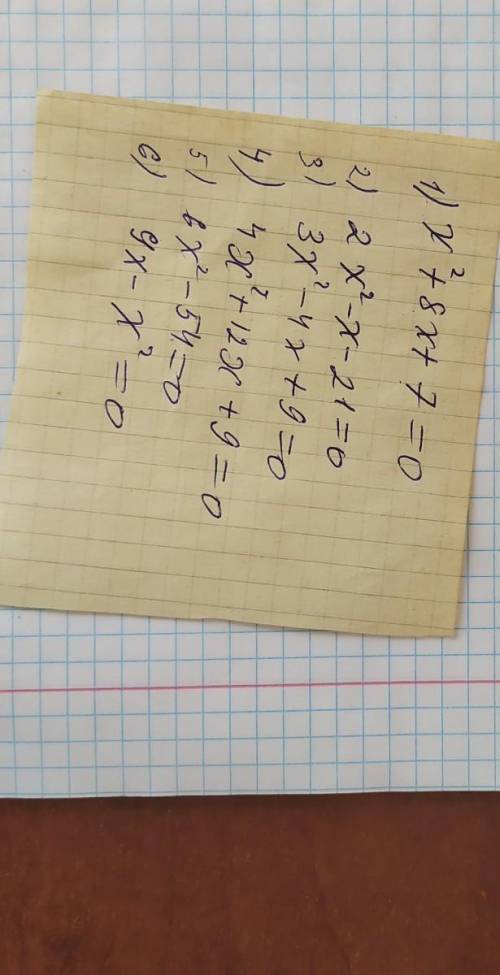 1) x² + 8x + 7 = 0
2) 2x² - x - 21 = 0
3) 3x² - 4x + 9 = 0
4) 4x² + 12x + 9 = 0
5) 6x² - 54 = 0
6) 9x - x² = 0